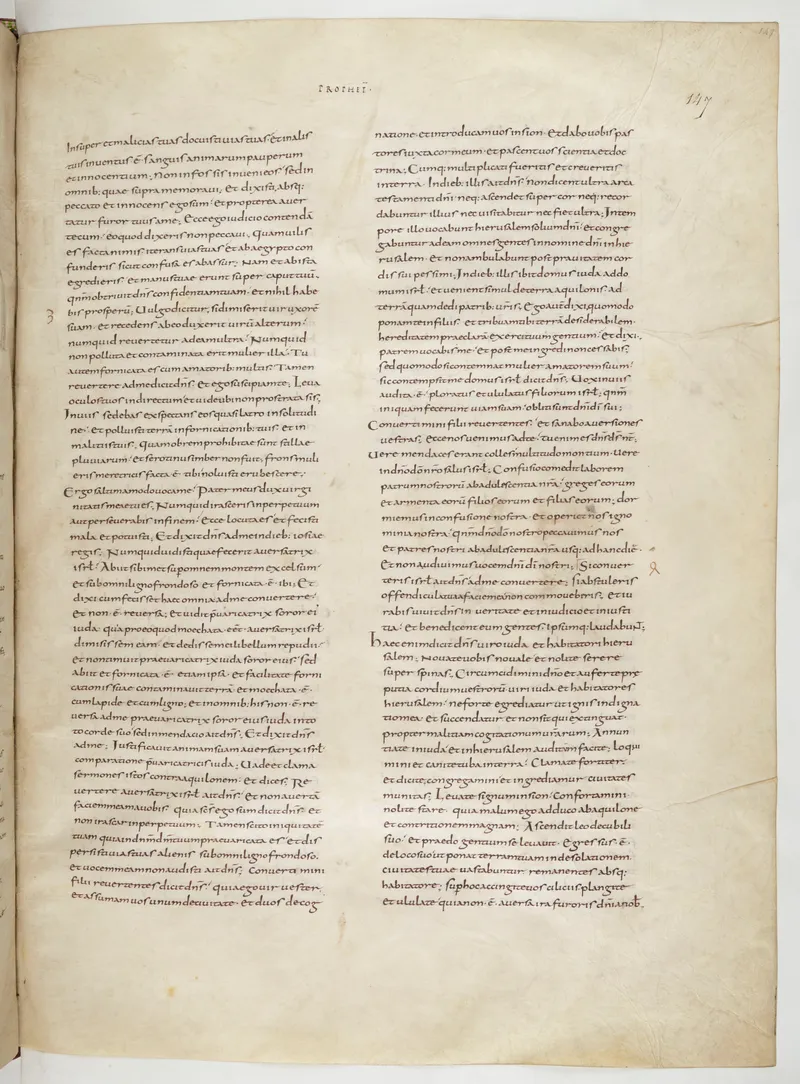 PROPHET̄·
147
Insuper et malicias tuas docuisti uias tuas· et in alis
tuis inuentus ē· sanguis animarum pauperum
et innocentum; Non in fossis inueni eos· sed in
omnib: quae supra memoraui, et dixisti, absq:
peccato et innocens ego sum· et propterea auer
tatur furor tuus a me; Ecce ego iudicio contendā
tecum· eo quod dixeris non peccaui; Quam uilis
es facta nimis iterans uias tuas· et ab aegypto con
funderis sicut confusa es ab assur; Nam et ab ista
egredieris· et manus tuae erunt super caput tuū·
qnm̄ obtriuit dns̄ confidentiam tuam· et nihil habe
3 bis prosperū; Uulgo dicitur, si dimiserit uir uxorē
suam· et recedens ab eo duxerit uirū alterum·
numquid reuertetur ad eam ultra? Numquid
non polluta et contaminata erit mulier illa? Tu
autem fornicata es cum amatorib: multis· Tamen
reuertere ad me dicit dns̄· et ego suscipiam te; Leua
oculos tuos in directum et uide ubi non prostrata sis;
In uiis sedebas exspectans eos quasi latro in solitudi
ne· et polluisti terrā in fornicationib: tuis· et in
malitiis tuis; Quam obrem prohibitae sunt stillae
pluuiarum· et serotinus imber non fuit; frons muli
eris meretricis facta ē· tibi noluisti erubescere;
Ergo saltim amodo uoca me· Pater meus dux uirgi
nitatis meae tu es; Numquid irasceris in perpetuum
aut perseuerabis in finem? Ecce locuta es et fecisti
mala et potuisti; Et dixit dns̄ ad me in dieb: iosiae
regis; Numquid uidisti quae fecerit auersatrix
isrł· Abiit sibimet sup omnem montem excelsum·
et sub omni ligno frondoso et fornicata ē· ibi; Et
dixi cum fecisset haec omnia ad me conuertere·
et non ē· reuersa; Et uidit puaricatrix soror ei'
iuda· quia pro eo quod moechata eēt auersatrix isrł·
dimisissem eam· et dedissem ei libellum repudii·
et non timuit praeuaricatrix iuda soror eius· sed
abiit et fornicata ē· etiam ipsa· et facilitate forni
cationis suae contaminauit terrā· et moechata ē·
cum lapide et cum ligno; Et in omnib: his non ē· re
uersa ad me praeuaricatrix soror eius iuda in to
to corde suo sed in mendacio ait dns̄; Et dixit dns̄
ad me; Iustificauit animam suam auersatrix isrł·
comparatione puaricatricis iuda; Uade et clama
sermones istos contra aquilonem· et dices; Re
uertere auersatrix isrł· ait dns̄· et non auertā
faciem meam a uobis· quia scs̄ ego sum dicit dns̄· et
non irascar in perpetuum; Tamen scito iniquitatē
tuam quia in dnm̄ dm̄ tuum praeuaricata es· et dis
persisti uias tuas alienis sub omni ligno frondoso·
et uocem meam non audisti ait dns̄; Conuertimini
filii reuertentes dicit dns̄· quia ego uir uester·
et assumam uos unum de ciuitate· et duos de cog
natione· et introducam uos in sion· Et dabo uobis pas
tores iuxta cor meum· et pascent uos scientia et doc
trina; Cumq: multiplicati fueritis et creueritis
in terra· In dieb: illis ait dns̄· non dicent ultra arca
testamenti dni̅· neq: ascendet super cor neq: recor
dabuntur illius nec uisitabitur nec fiet ultra; In tem
pore illo uocabunt hierusalem solium dni̅· et congre
gabuntur ad eam omnes gentes in nomine dni̅ in hie
rusalem· et non ambulabunt post prauitatem cor
dis sui pessimi; In dieb: illis ibit domus iuda ad do
mum isrł· et uenient simul de terra aquilonis· ad
terrā quam dedi patrib: uris̅; Ego aut̄ dixi, quomodo
ponam te in filiis· et tribuam tibi terrā desiderabilem·
hereditatem praeclarā exercituum gentium· Et dixi,
patrem uocabis me· et post me ingredi non cessabis·
sed quomodo si contemnat mulier amatorem suum·
sic contempsit me domus isrł· dicit dns̄; Uox in uiis
audita ē· ploratus et ululatus filiorum isrł· qnm̄
iniquam fecerunt uiam suam· obliti sunt dni̅ di̅ sui;
Conuertimini filii reuertentes· et sanabo auersiones
uestras; Ecce nos uenimus ad te· tu enim es dns̄ ds̄ nr̄;
Uere mendaces erant colles multitudo montium· Uere
in dno̅ do̅ nro̅ salus isrł·; Confusio comedit laborem
patrum nostrorū ab adulescentia nrā· greges eorum
et armenta eorū filios eorum et filias eorum; dor
miemus in confusione nostra· et operiet nos igno
minia nostra· qnm̄ dno̅ do̅ nostro peccauimus nos
et patres nostri ab adulescentia nrā usq: ad hanc diē·
Et non audiuimus uocem dni̅ di̅ nostri; Si conuer
teris isrł· ait dns̄ ad me conuertere; si abstuleris
offendicula tua a facie mea non commoueberis· et iu
rabis uiuit dns̄ in ueritate et in iudicio et in iusti
tia· et benedicent eum gentes· ipsumq: laudabunt;
Haec enim dicit dns̄ uiro iuda et habitatori hieru
salem; Nouate uobis nouale et nolite serere
super spinas; Circumcidimini dno̅ et auferte pre
putia cordium uestrorū uiri iuda et habitatores
hierusalem· ne forte egrediatur ut ignis indigna
tio mea· et succendatur et non sit qui extinguat·
propter malitiam cogitationum urārum; Annun
tiate in iuda· et in hierusalem auditum facite; Loqui
mini et canite tuba in terra· Clamate fortiter·
et dicite; congregamini et ingrediamur ciuitates
munitas; Leuate signum in sion· Confortamini
nolite stare· quia malum ego adduco ab aquilone
et contritionem magnam; Ascendit leo de cubili
suo· et praedo gentium se leuauit· Egressus ē·
de loco suo ut ponat terram tuam in desolationem·
ciuitates tuae uastabuntur· remanentes absq:
habitatore; super hoc accingite uos ciliciis plangite
et ululate· quia non ē· auersa ira furoris dni̅ a nob·